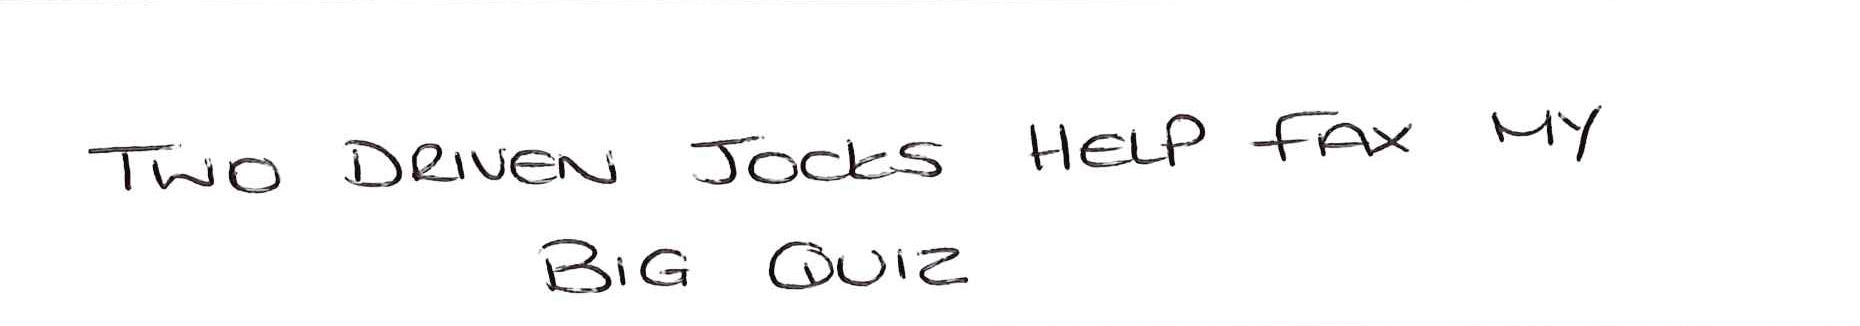 TWO DRIVEN JOCKS HELP FAX MY
BIG QUIZ